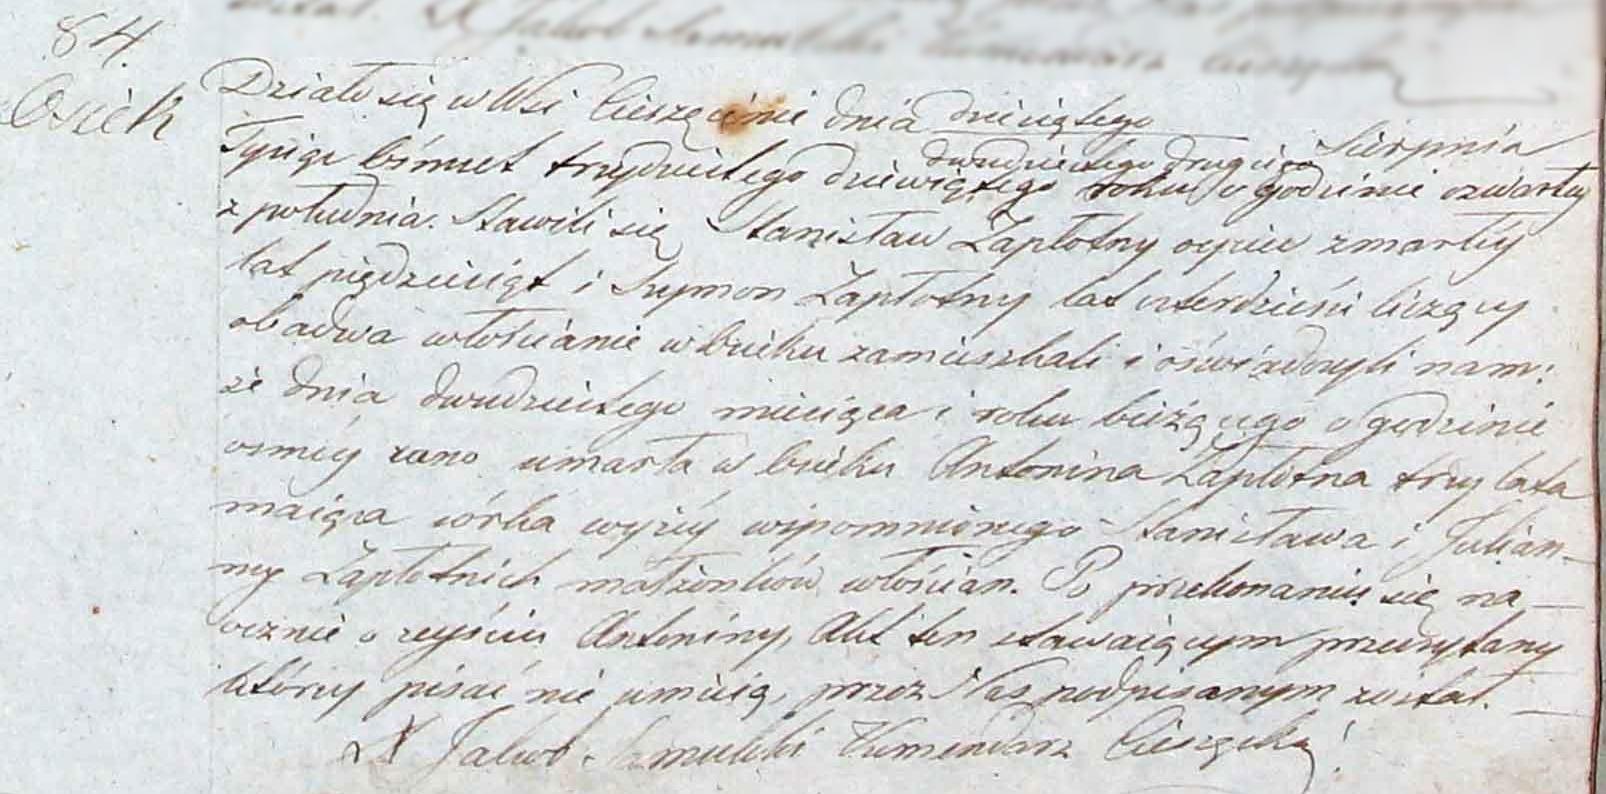 84.
Osiek
Działo się w Wsi Cieszęcinie dnia dziesiątego
dwudziestego drugiego Sierpnia
Tysiąc ośmset trzydziestego dziewiątego roku o godzinie czwartej
z południa. Stawili się Stanisław Zapłotny ociec zmarłey
lat pięćdziesiąt i Szymon Zapłotny lat czterdzieści liczący
obadwa włościanie w Osieku zamieszkali i oświadczyli nam:
że dnia dwudziestego miesiąca i roku bieżącego o godzinie
osmey rano umarła w Osieku Antonina Zapłotna trzy lata
maiąca córka wyżey wspomnionego Stanisława i Julian-
ny Zapłotnich małżonków włościan. Po przekonaniu się na-
ocznie o zeyściu Antoniny, Akt ten stawaiącym przeczytany
którzy pisać nie umieią, przez Nas podpisanym został.
X Jakob Kommendarz